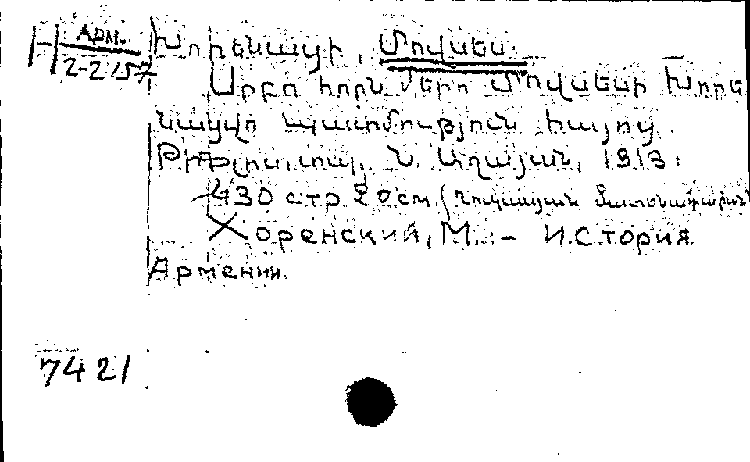 Арм.
2-2157
Խորենացի, Մովսես.
Սրբո հորն մերո Մովսեսի Խորե
նացվո պատմություն հայոց.
Թիֆլիս, տպ. Ն. Աղայան, 1913.
430 стр 20 см. (Ղուկասյան մատենադարան
Хоренский, М. - История
Армении.
7421